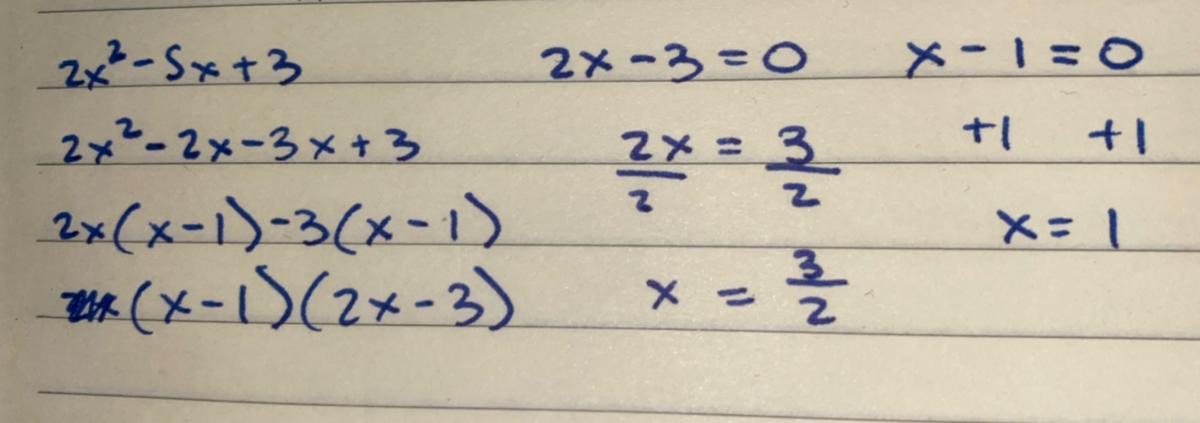 2x² - 5x + 3
2x² - 2x - 3x + 3
2x(x - 1) - 3(x - 1)
(x - 1)(2x - 3)
2x - 3 = 0
2x/2 = 3/2
x = 3/2
x - 1 = 0
+1 +1
x = 1